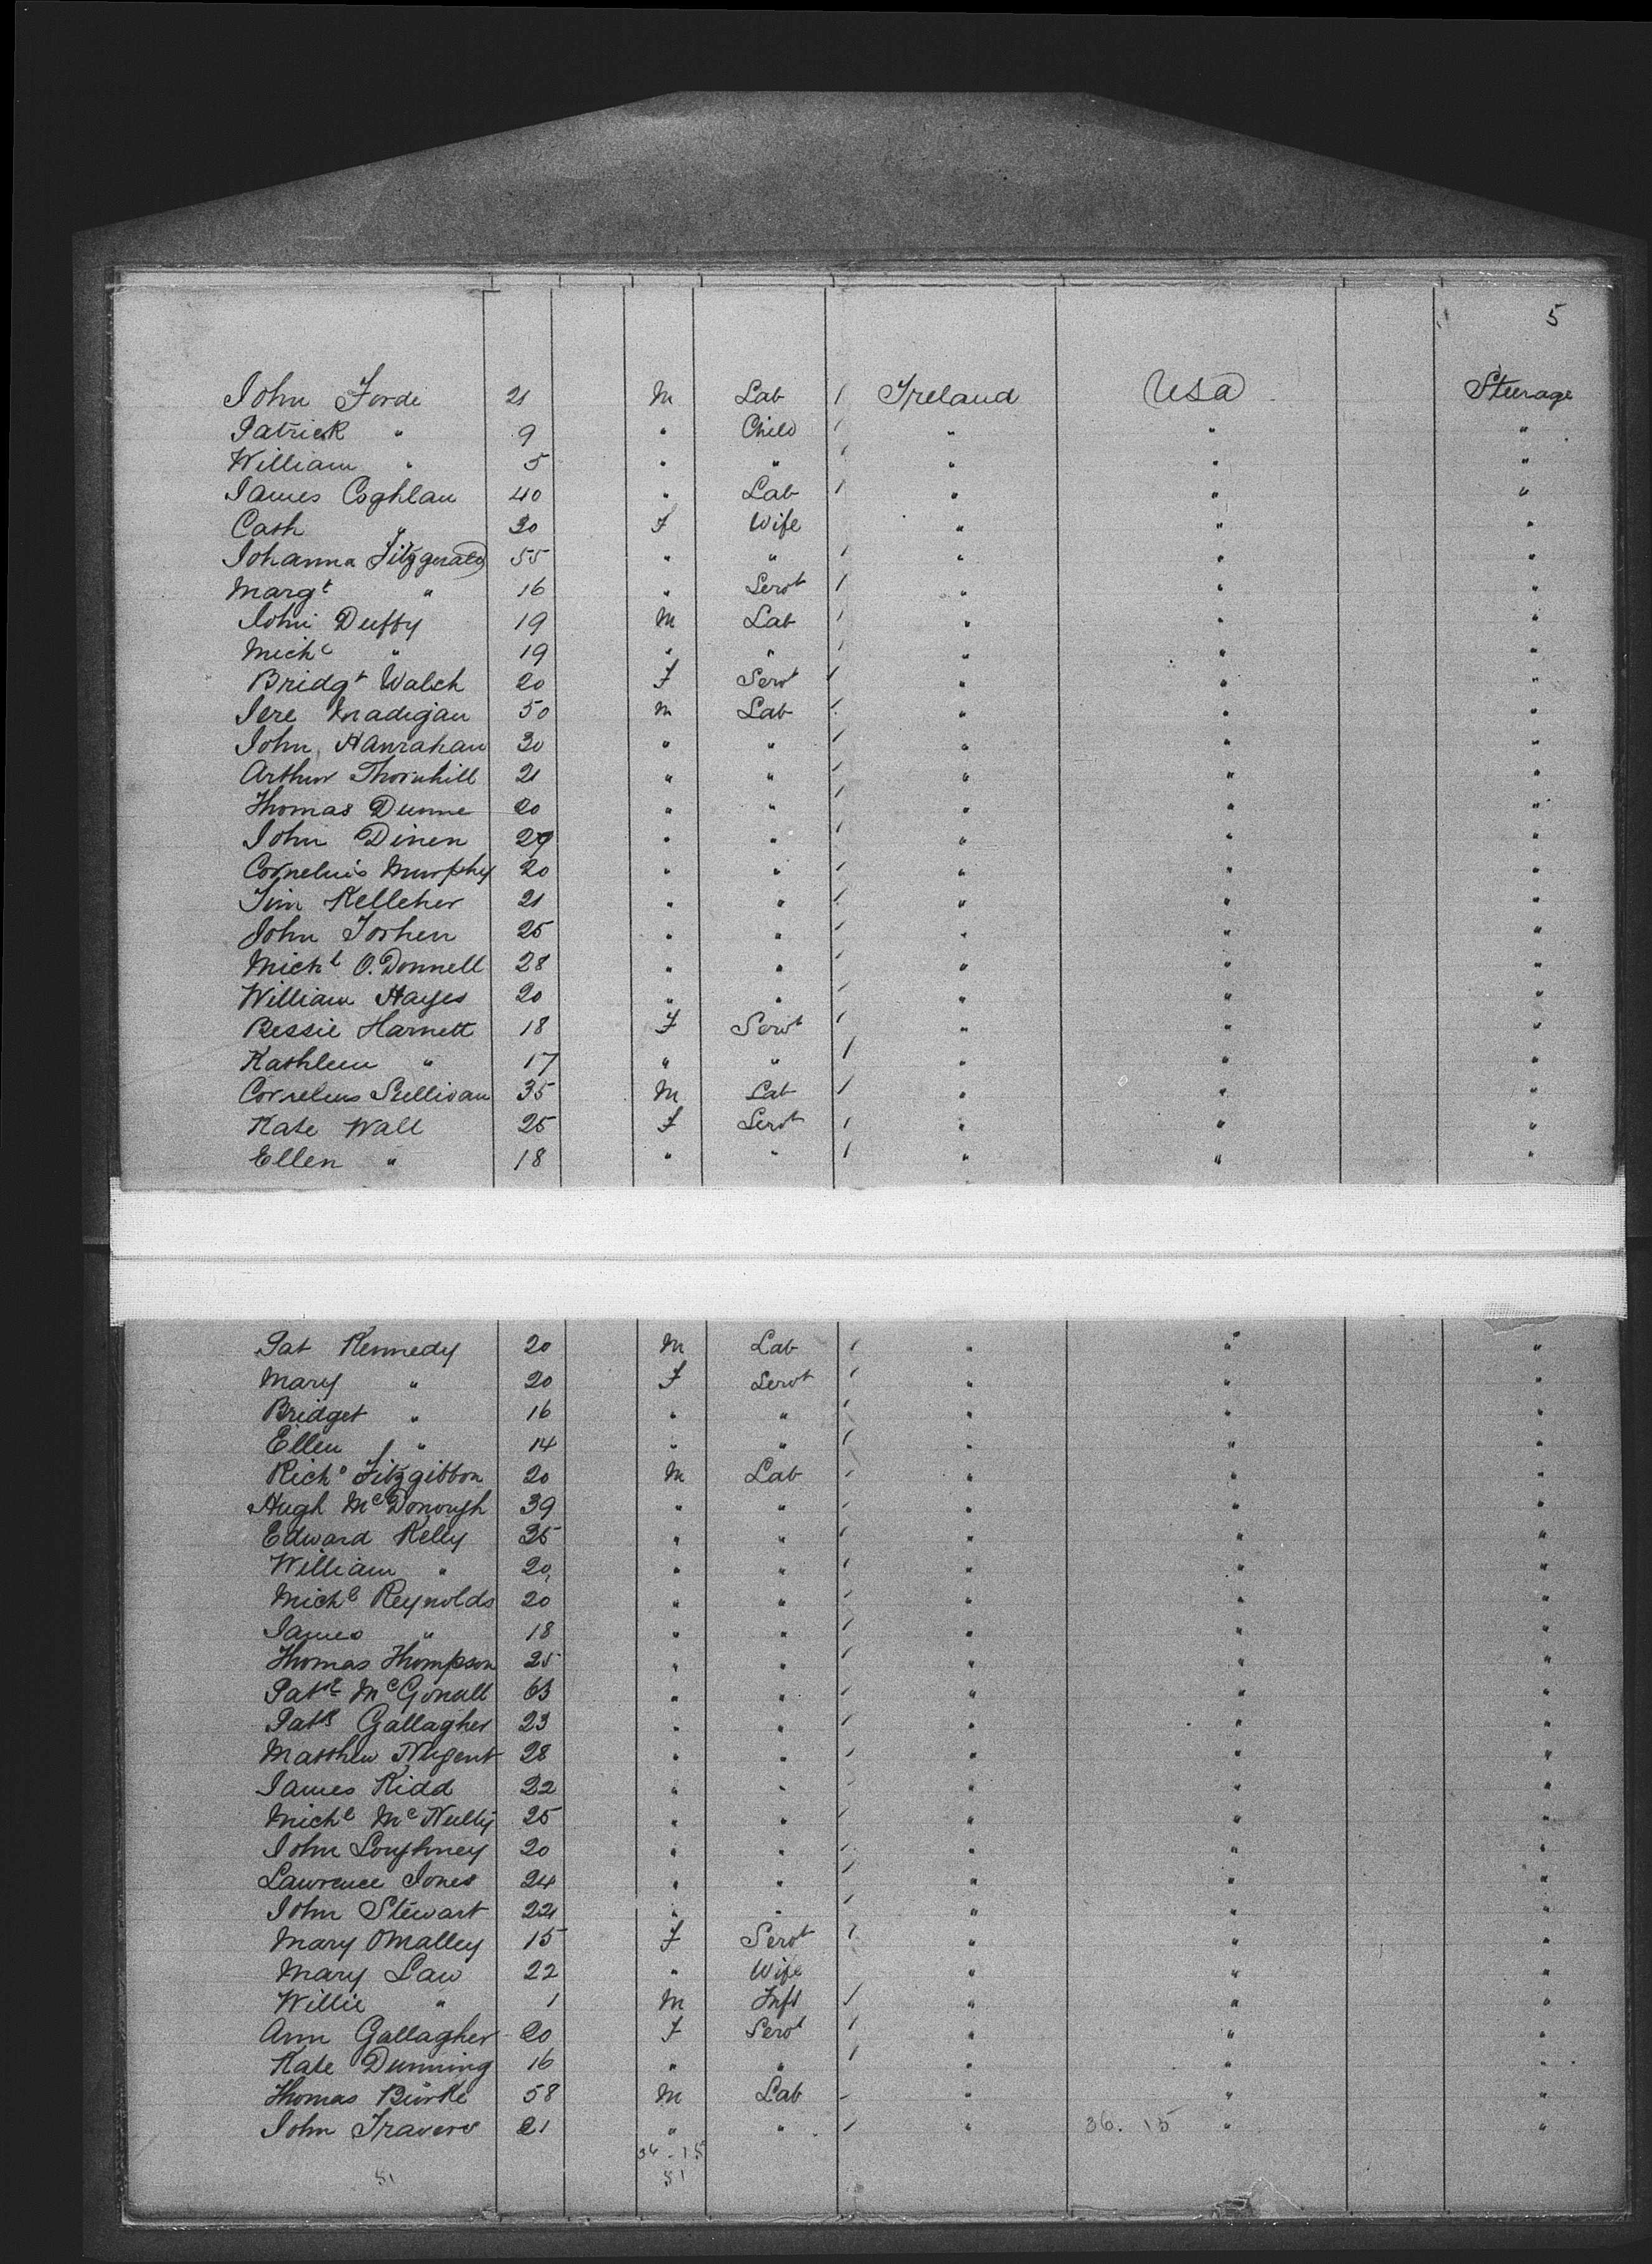 5
John Forde 21 M Lab / Ireland USA Steerage
Patrick " 9 " Child / " " "
William " 5 " " / " " "
James Coghlan 40 " Lab / " " "
Cath " 30 F Wife " " "
Johanna Fitzgerald 55 " " / " " "
Margt " 16 " Servt / " " "
John Duffy 19 M Lab / " " "
Michl " 19 " " / " " "
Bridgt Walsh 20 F Servt / " " "
Jere Madigan 50 M Lab / " " "
John Hanrahan 30 " " / " " "
Arthur Thornhill 21 " " / " " "
Thomas Dunne 20 " " / " " "
John Dinen 29 " " / " " "
Cornelius Murphy 20 " " / " " "
Tim Kelleher 21 " " / " " "
John 25 " " / " " "
Michl O.Donnell 28 " " / " " "
William Hayes 20 " " / " " "
Bessie Harnett 18 F Servt / " " "
Kathleen " 17 " " / " " "
Cornelius Sullivan 35 M Lab / " " "
Kate Wall 25 F Servt / " " "
Ellen " 18 " " / " " "
Pat Kennedy 20 M Lab / " " "
Mary " 20 F Servt / " " "
Bridget " 16 " " / " " "
Ellen " 14 " " / " " "
Richd Fitzgibbon 20 M Lab / " " "
Hugh McDonough 39 " " / " " "
Edward Kelly 35 " " / " " "
William " 20 " " / " " "
Michl Reynolds 20 " " / " " "
James " 18 " " / " " "
Thomas Thompson 25 " " / " " "
Patk McGonall 63 " " / " " "
Patk Gallagher 23 " " / " " "
Matthew Nugent 28 " " / " " "
James Kidd 22 " " / " " "
Michl McNulty 25 " " / " " "
John Loughney 20 " " / " " "
Lawrence Jones 24 " " / " " "
John Stewart 22 " " / " " "
Mary OMalley 15 F Servt / " " "
Mary Law 22 " Wife " " "
Willie " 1 M Inft / " " "
Ann Gallagher 20 F Servt / " " "
Kate Dunning 16 " " / " " "
Thomas Burke 58 M Lab / " " "
John Travers 21 " " / " 36. 15 " "
36-15
51 51